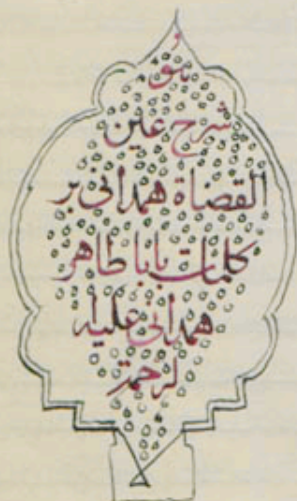 هو
شرح عین
القضاة همدانی بر
کلمات بابا طاهر
همدانی علیه
الرحمة